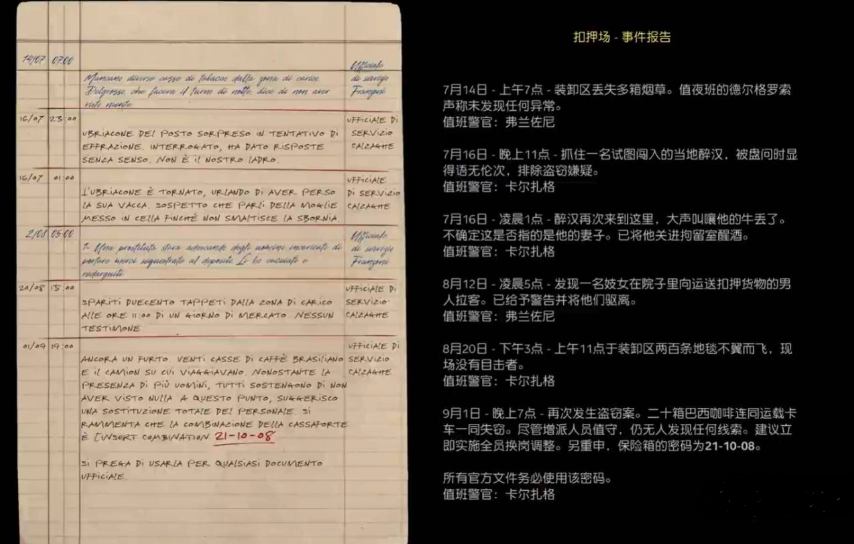 14/07 07:00
Mancano diverse casse di tabacco dalla zona di carico
Delgrosso, che faceva il turno di notte, dice di non aver
visto niente
Ufficiale
di servizio
Franzoni
16/07 23:00
UBRIACONE DEL POSTO SORPRESO IN TENTATIVO DI
EFFRAZIONE. INTERROGATO, HA DATO RISPOSTE
SENZA SENSO. NON È IL NOSTRO LADRO.
UFFICIALE DI
SERVIZIO
CALZAGHE
16/07 01:00
L'UBRIACONE È TORNATO, URLANDO DI AVER PERSO
LA SUA VACCA. SOSPETTO CHE PARLI DELLA MOGLIE
MESSO IN CELLA FINCHÉ NON SMALTISCE LA SBORNIA.
UFFICIALE
DI SERVIZIO
CALZAGHE
2/08 05:00
Una prostituta stava adescando degli uomini incaricati di
portare merce sequestrata al deposito Li ho cacciati e
redarguiti
Ufficiale
di servizio
Franzoni
20/08 15:00
SPARITI DUECENTO TAPPETI DALLA ZONA DI CARICO
ALLE ORE 11:00 DI UN GIORNO DI MERCATO. NESSUN
TESTIMONE
UFFICIALE DI
SERVIZIO
CALZAGHE
01/09 19:00
ANCORA UN FURTO. VENTI CASSE DI CAFFÈ BRASILIANO
E IL CAMION SU CUI VIAGGIAVANO. NONOSTANTE LA
PRESENZA DI PIÙ UOMINI, TUTTI SOSTENGONO DI NON
AVER VISTO NULLA A QUESTO PUNTO, SUGGERISCO
UNA SOSTITUZIONE TOTALE DEL PERSONALE. SI
RAMMENTA CHE LA COMBINAZIONE DELLA CASSAFORTE
È [INSERT COMBINATION 21-10-08
SI PREGA DI USARLA PER QUALSIASI DOCUMENTO
UFFICIALE.
UFFICIALE DI
SERVIZIO
CALZAGHE
扣押场 - 事件报告
7月14日 - 上午7点 - 装卸区丢失多箱烟草。值夜班的德尔格罗索
声称未发现任何异常。
值班警官：弗兰佐尼
7月16日 - 晚上11点 - 抓住一名试图闯入的当地醉汉，被盘问时显
得语无伦次，排除盗窃嫌疑。
值班警官：卡尔扎格
7月16日 - 凌晨1点 - 醉汉再次来到这里，大声叫嚷他的牛丢了。
不确定这是否指的是他的妻子。已将他关进拘留室醒酒。
值班警官：卡尔扎格
8月12日 - 凌晨5点 - 发现一名妓女在院子里向运送扣押货物的男
人拉客。已给予警告并将他们驱离。
值班警官：弗兰佐尼
8月20日 - 下午3点 - 上午11点于装卸区两百条地毯不翼而飞，现
场没有目击者。
值班警官：卡尔扎格
9月1日 - 晚上7点 - 再次发生盗窃案。二十箱巴西咖啡连同运载卡
车一同失窃。尽管增派人员值守，仍无人发现任何线索。建议立
即实施全员换岗调整。另重申，保险箱的密码为21-10-08。
所有官方文件务必使用该密码。
值班警官：卡尔扎格